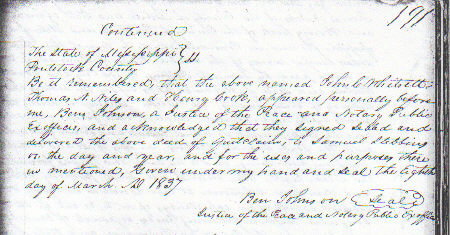 191
Continued
The State of Mississippi } ss
Pontotock County
Be it remembered, that the above named John C Whitsett
Thomas N. Niles and Henry Cook, appeared personally before
me, Ben Johnson, a Justice of the Peace and Notary Public
Exofficer, and acknowledged that they signed Sealed and
delivered the above deed of Quit claim, to Samuel
on the day and year, and for the uses and purposes there
in mentioned, Given under my hand and Seal the Eighth
day of March AD 1837
Ben Johnson (Seal)
Justice of the Peace and Notary Public Exoffic